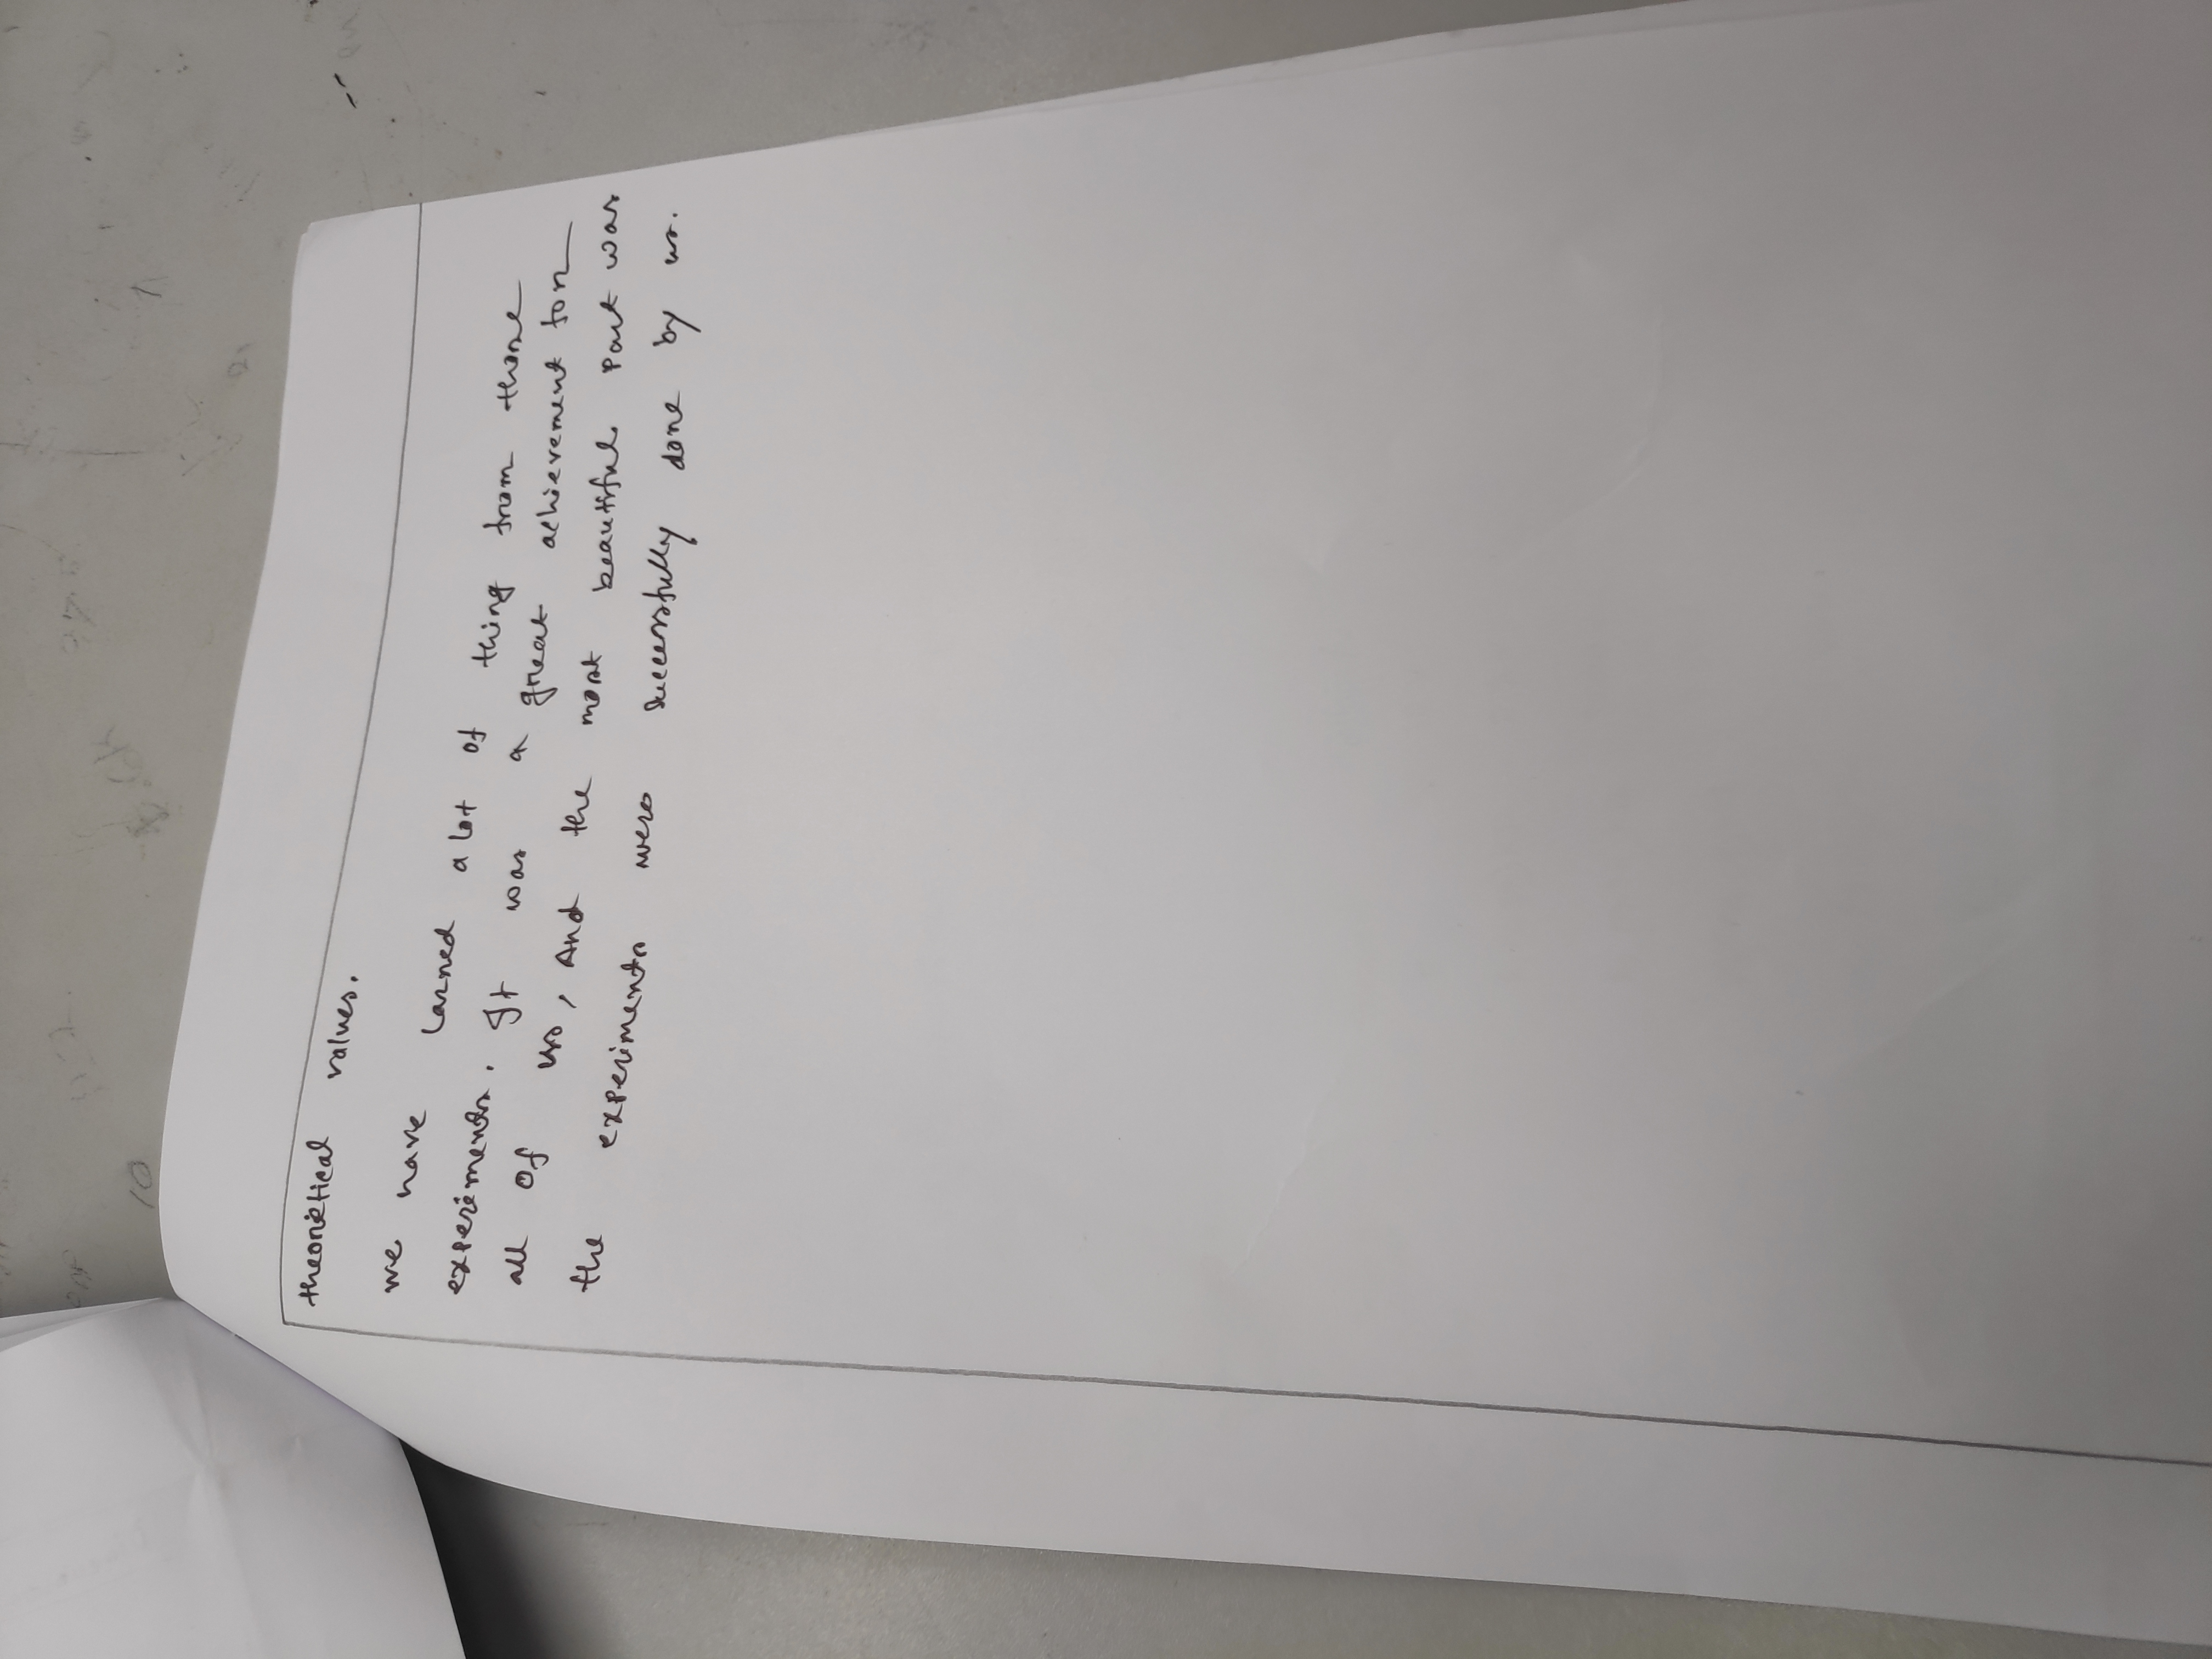 theoretical values.
we have larned a lot of thing from those
experiments. It was a great achievement for
all of us, And the most beautiful part was
the experiments were successfully done by us.
10